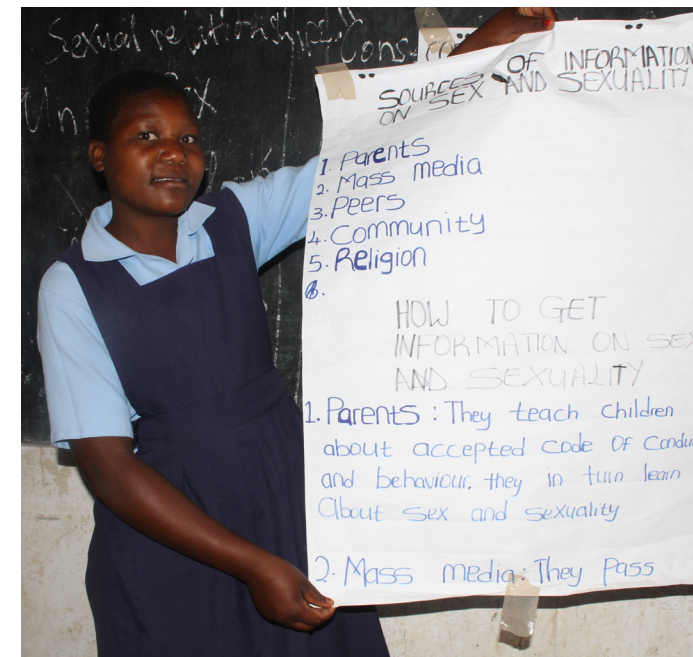 Sexual relationships. Cons
Un Sex
SOURCES OF INFORMATION
ON SEX AND SEXUALITY
1. Parents
2. Mass media
3. Peers
4. Community
5. Religion
6.
HOW TO GET
INFORMATION ON SEX
AND SEXUALITY
1. Parents : They teach children
about accepted code of condu
and behaviour. they in turn learn
about sex and sexuality
2. Mass media : They pass